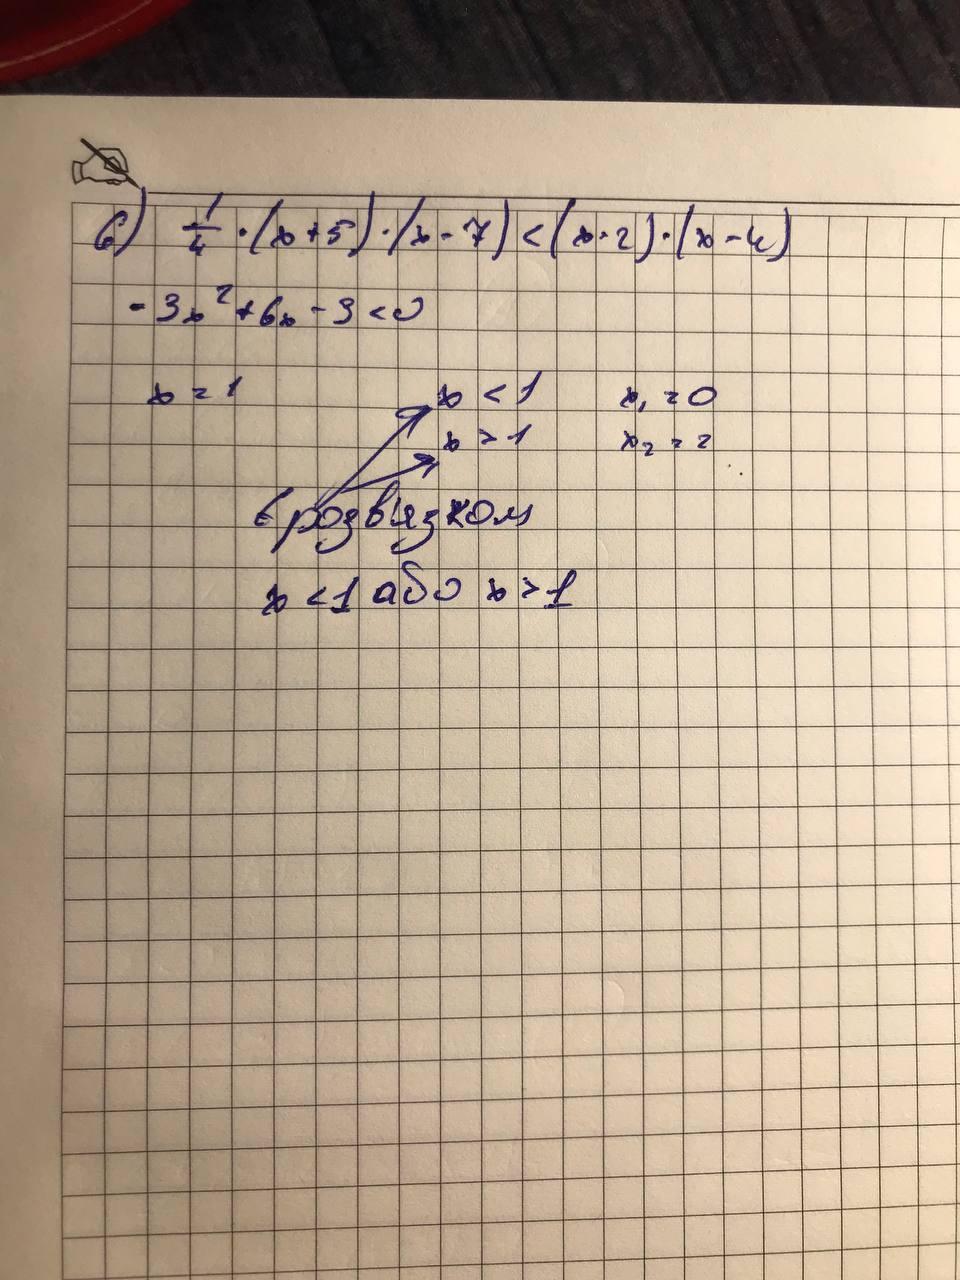 6) 1/4 · (x + 5) · (x - 7) < (x - 2) · (x - 4)
- 3x² + 6x - 3 < 0
x = 1 x < 1 x₁ = 0
x > 1 x₂ = 2
є розвязком
x < 1 або x > 1